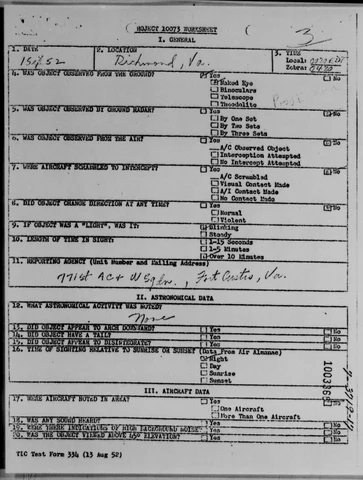 PROJECT 10073 WORKSHEET
I. GENERAL
1. DATE
2. LOCATION
Richmond, Va.
3. TIME
Local:
Zebra:
4. WAS OBJECT OBSERVED FROM THE GROUND?
Yes
No
Naked Eye
Binoculars
Telescope
Theodolite
5. WAS OBJECT OBSERVED BY GROUND RADAR?
Yes
No
By One Set
By Two Sets
By Three Sets
6. WAS OBJECT OBSERVED FROM THE AIR?
Yes
No
A/C Observed Object
Interception Attempted
No Intercept Attempted
7. WERE AIRCRAFT SCRAMBLED TO INTERCEPT?
Yes
No
A/C Scrambled
Visual Contact Made
A/I Contact Made
No Contact Made
8. DID OBJECT CHANGE DIRECTION AT ANY TIME?
Yes
No
Normal
Violent
9. IF OBJECT WAS A "LIGHT", WAS IT:
Blinking
Steady
10. LENGTH OF TIME IN SIGHT:
1-15 Seconds
1-5 Minutes
Over 10 Minutes
11. REPORTING AGENCY (Unit Number and Mailing Address)
771st AC & W Sqdn., Fort Custis, Va.
II. ASTRONOMICAL DATA
12. WHAT ASTRONOMICAL ACTIVITY WAS NOTED?
None
13. DID OBJECT APPEAR TO ARCH DOWNWARD?
Yes
No
14. DID OBJECT HAVE A TAIL?
Yes
No
15. DID OBJECT APPEAR TO DISINTEGRATE?
Yes
No
16. TIME OF SIGHTING RELATIVE TO SUNRISE OR SUNSET (Data From Air Almanac)
Night
Day
Sunrise
Sunset
III. AIRCRAFT DATA
17. WERE AIRCRAFT NOTED IN AREA?
Yes
No
One Aircraft
More Than One Aircraft
18. WAS ANY SOUND HEARD?
Yes
No
19. WERE THERE INDICATIONS OF HIGH BACKGROUND NOISE?
Yes
No
20. WAS THE OBJECT VIEWED ABOVE 450 ELEVATION?
Yes
No
TIC Test Form 334 (13 Aug 52)